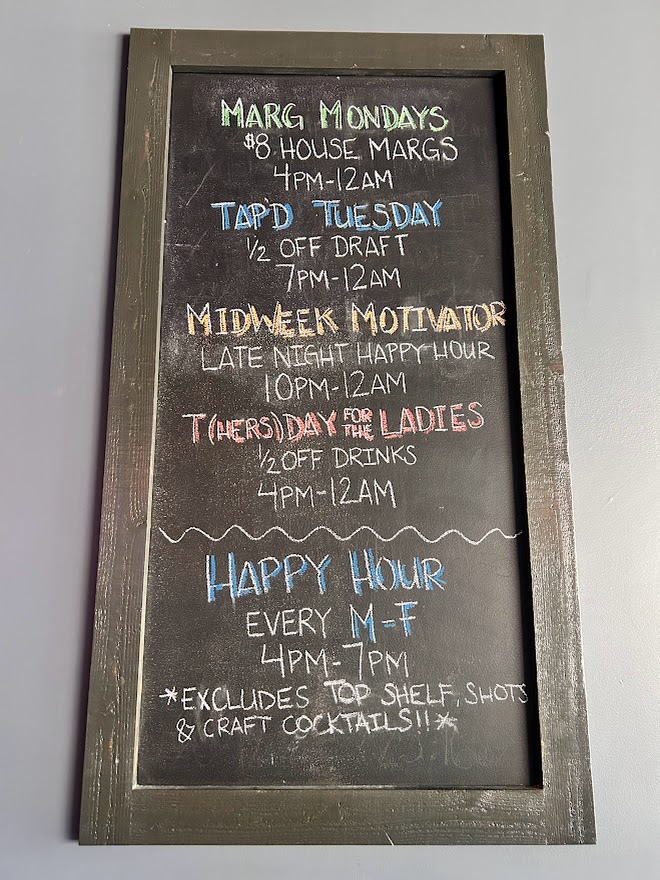 MARG MONDAYS
$8 HOUSE MARGS
4PM-12AM
TAP'D TUESDAY
1/2 OFF DRAFT
7PM-12AM
MIDWEEK MOTIVATOR
LATE NIGHT HAPPY HOUR
10PM-12AM
T(HERS)DAY FOR THE LADIES
1/2 OFF DRINKS
4PM-12AM
HAPPY HOUR
EVERY M-F
4PM-7PM
*EXCLUDES TOP SHELF, SHOTS
& CRAFT COCKTAILS!!*